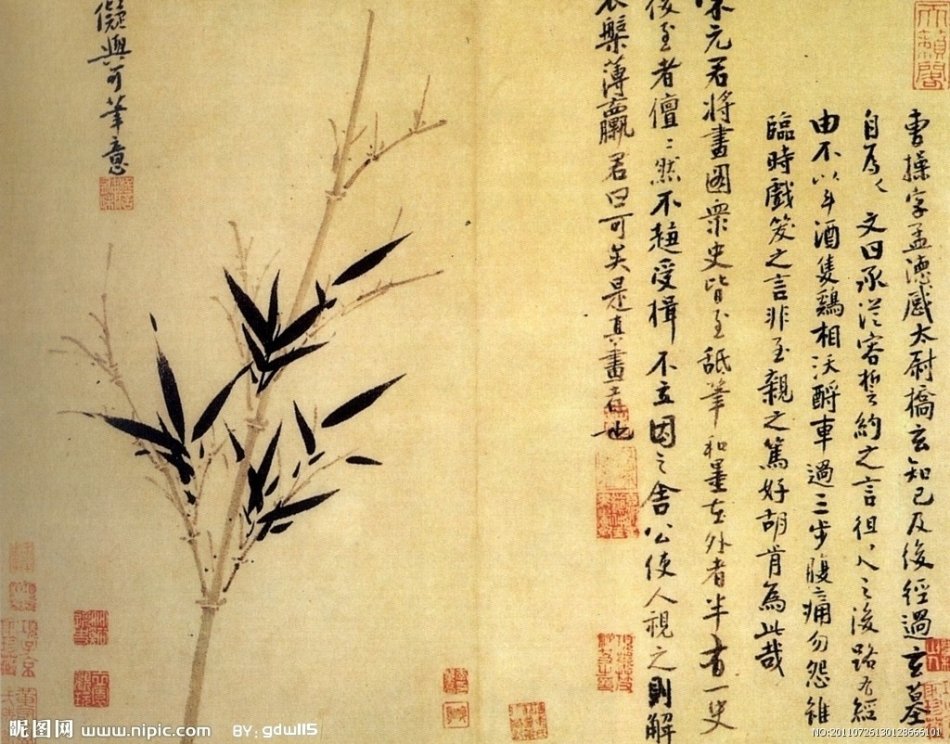 天籟閣
曹操字孟德感太尉橋玄知己及後經過玄墓
自為文曰承從容誓約之言徂之後路有經
由不以斗酒隻鷄相沃酹車過三步腹痛勿怨雖
臨時戲笑之言非至親之篤好胡肯為此哉
宋元君將畫圖衆史皆至舐筆和墨在外者半有一史
後至者儃〻然不趨受揖不立因之舍公使人視之則解
衣槃薄臝君曰可矣是真畫者也
儗與可筆意
昵图网 www.nipic.com BY: gdwl15
NO:20110725130128666101